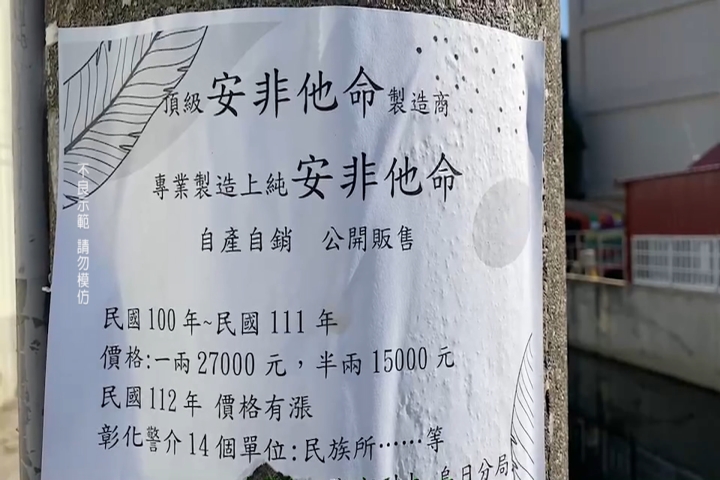 頂級安非他命製造商
專業製造上純安非他命
自產自銷 公開販售
不良示範 請勿模仿
民國100年~民國111年
價格:一兩27000元，半兩15000元
民國112年 價格有漲
彰化警介14個單位:民族所……等
烏日分局